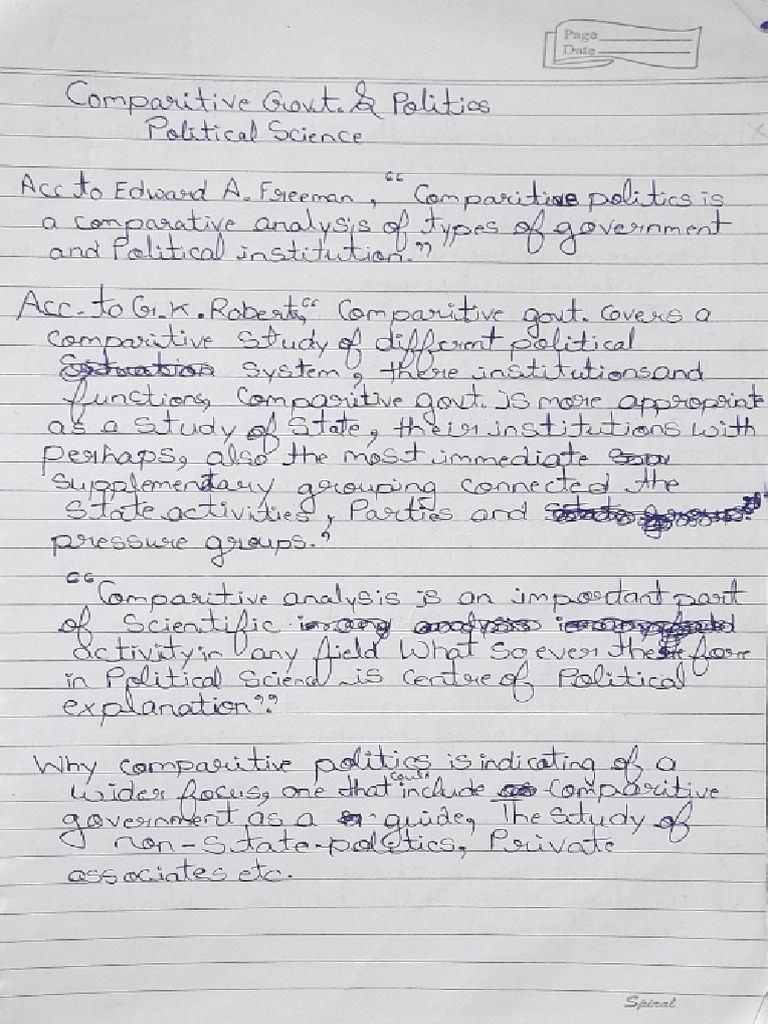 Page
Date
Comparitive Govt. & Politics
Political Science
Acc to Edward A. Freeman, "Comparitive politics is
a comparative analysis of types of government
and Political institution."
Acc. to G.K. Robert, "Comparitive govt. covers a
comparitive study of different political
system, there institutions and
functions, comparitive govt. is more appropriate
as a study of State, their institutions with
perhaps, also the most immediate
supplementary grouping connected the
state activities, Parties and
pressure groups."
"Comparitive analysis is an important part
of Scientific
activity in any field What so ever therefore
in Political Science is centre of Political
explanation"
Why comparitive politics is indicating of a
wider focus, one that could include comparitive
government as a guide, The study of
non-state-politics, Private
associates etc.
Spiral